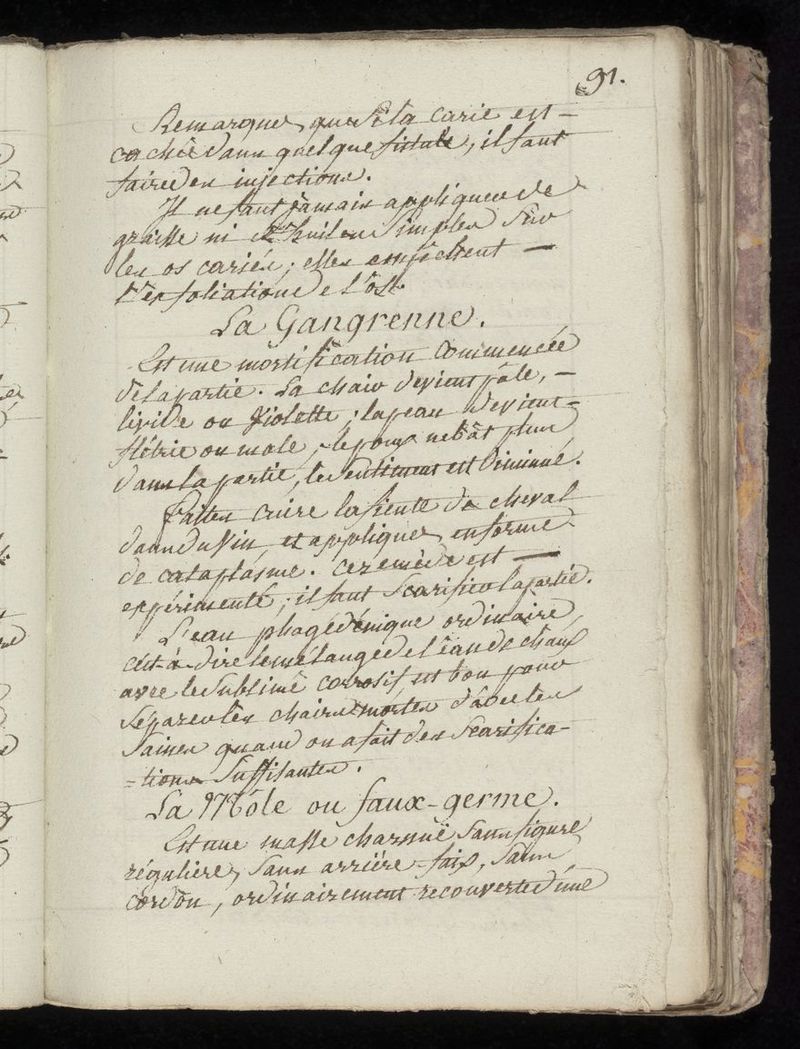 91.
Remarquez que si la carie est –
cachée dans quelque fistule, il faut
faire des injections.
Il ne faut jamais appliquer de
graisse ni d'huiles simples sur
les os cariés; elles empêchent —
l'exfoliation de l'os.
La Gangrenne.
Est une mortification commencée
de la partie. La chair devient pâle, –
livide ou violette; la peau devient –
flétrie ou mole, le poux ne bât plus
dans la partie, le sentiment est diminué.
Faites cuire la fiente de cheval
dans du vin, et appliquez en forme
de cataplasme. ce remède est —
expérimenté; il faut scarifier la partie.
L'eau phagédénique ordinaire,
cést-à-dire le mélange de l'eau de chaux
avec le sublimé corrosif, est bon pour
séparer les chairs mortes d'avec les
saines quand on a fait des scarifica-
-tions suffisantes.
La Môle ou faux-germe.
Est une masse charnuë sans figure
réguliere, sans arriére-faix, sans
cordon, ordinairement recouverte d'une